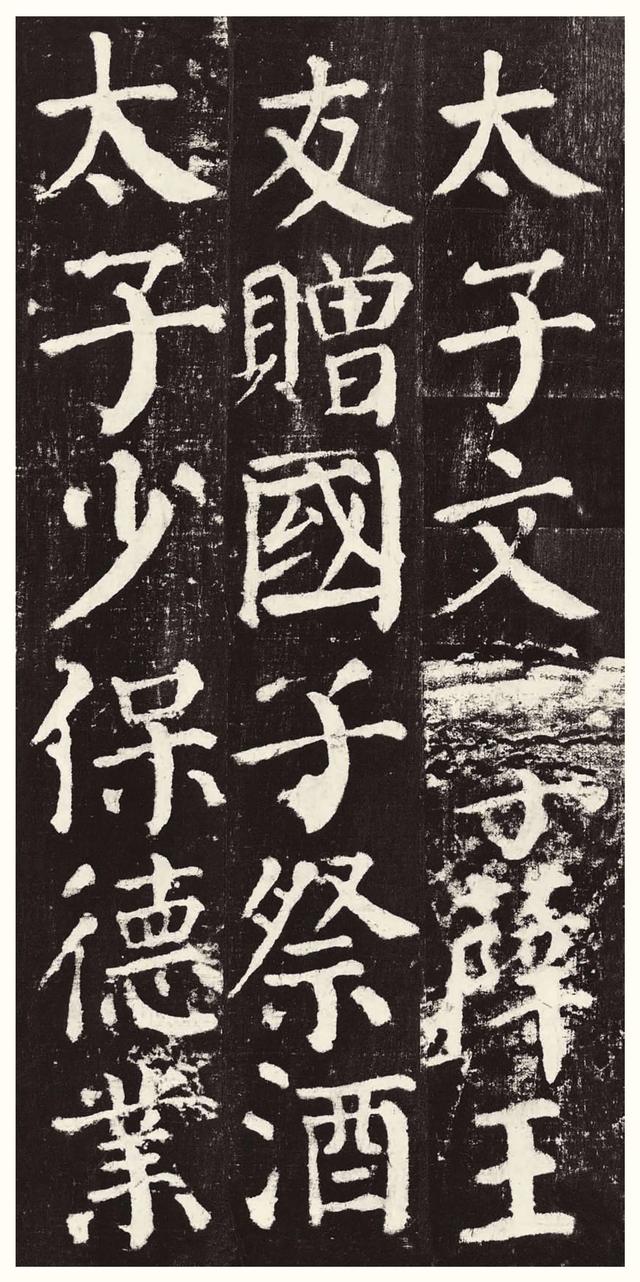 太子文子薛王
友贈國子祭酒
太子少保德業